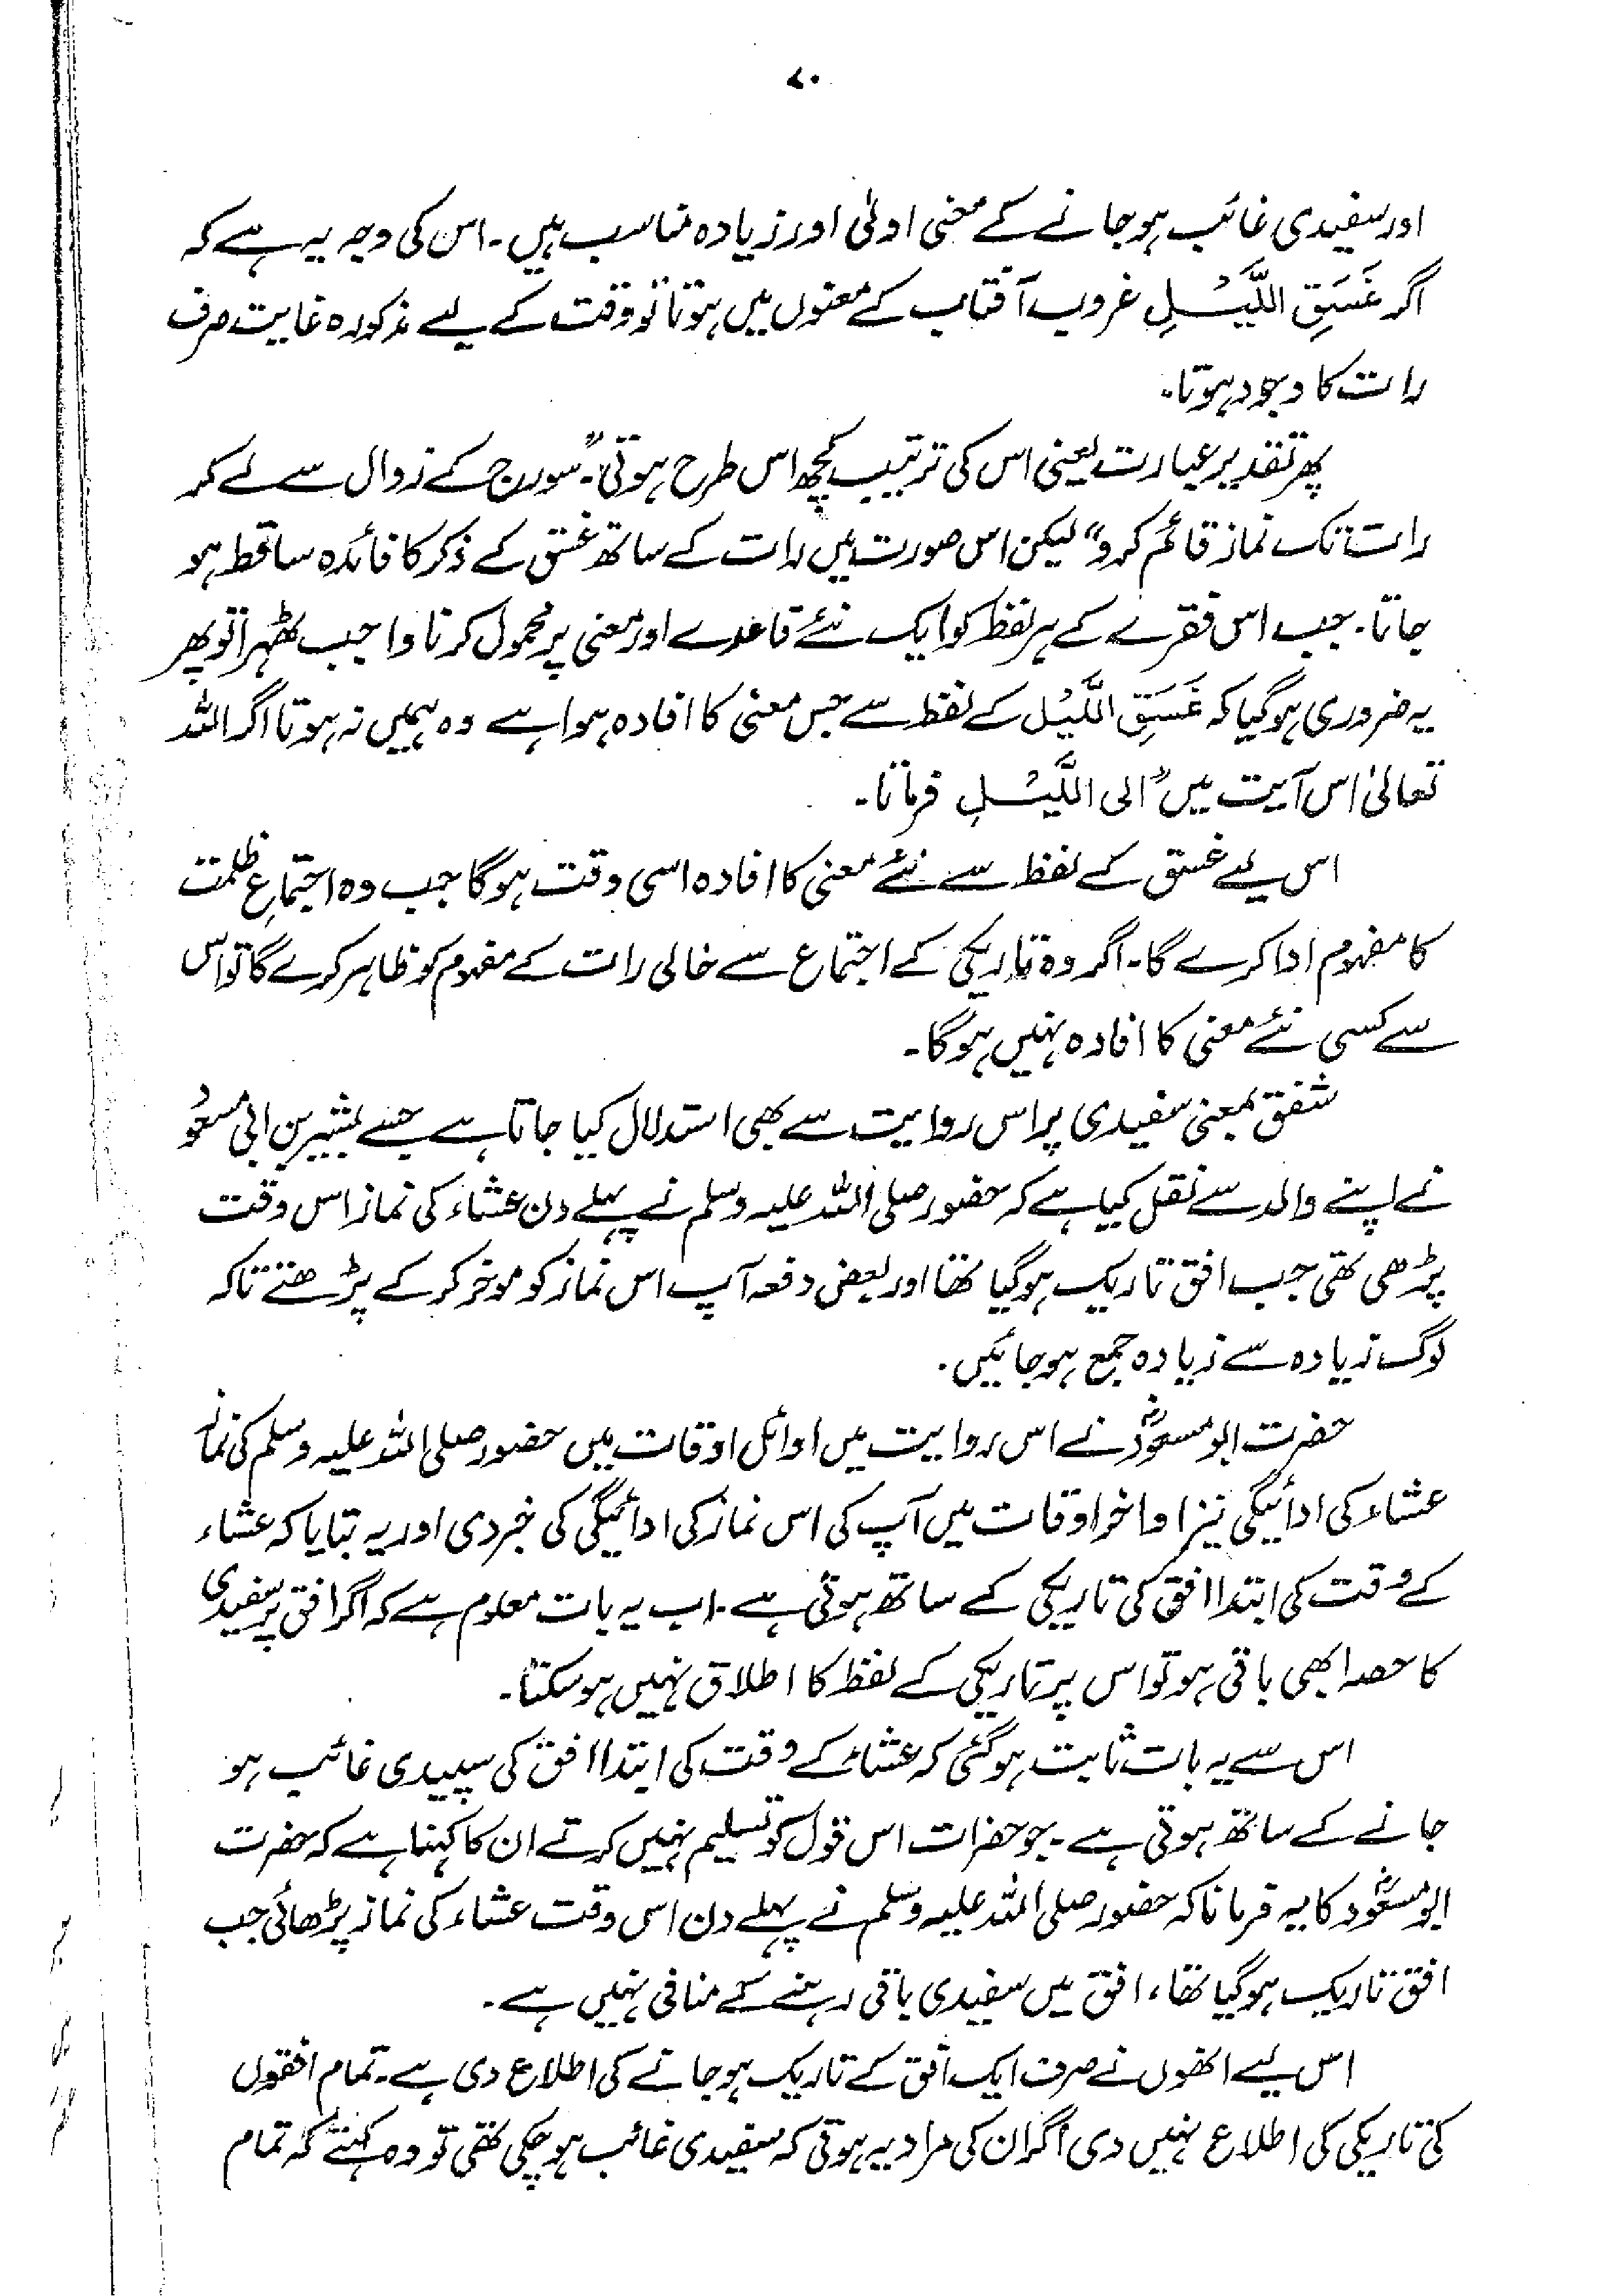 ۷۰
اور سفیدی غائب ہو جانے کے معنی اولیٰ اور زیادہ مناسب ہیں۔ اس کی وجہ یہ ہے کہ
اگر غَسَقِ اللَّیْلِ غروب آفتاب کے معنوں میں ہوتا تو وقت کے لیے مذکورہ غایت صرف
رات کا وجود ہوتا۔
پھر تقدیر عبارت یعنی اس کی ترتیب کچھ اس طرح ہوتی۔ "سورج کے زوال سے لے کر
رات تک نماز قائم کرو" لیکن اس صورت میں رات کے ساتھ غسق کے ذکر کا فائدہ ساقط ہو
جاتا۔ جب اس فقرے کے ہر لفظ کو ایک نئے قاعدے اور معنی پر محمول کرنا واجب ٹھہرا تو پھر
یہ ضروری ہوگیا کہ غَسَقِ اللَّیْل کے لفظ سے جس معنی کا افادہ ہوا ہے وہ ہمیں نہ ہوتا اگر اللہ
تعالیٰ اس آیت میں "الی اللَّیْلِ فرماتا۔
اس لیے غسق کے لفظ سے نئے معنی کا افادہ اسی وقت ہوگا جب وہ اجتماعِ ظلمت
کا مفہوم ادا کرے گا۔ اگر وہ تاریکی کے اجتماع سے خالی رات کے مفہوم کو ظاہر کرے گا تو اس
سے کسی نئے معنی کا افادہ نہیں ہوگا۔
شفق بمعنی سفیدی پر اس روایت سے بھی استدلال کیا جاتا ہے جسے بشیر بن ابی مسعود
نے اپنے والد سے نقل کیا ہے کہ حضور صلی اللہ علیہ وسلم نے پہلے دن عشاء کی نماز اس وقت
پڑھی تھی جب افق تاریک ہوگیا تھا اور بعض دفعہ آپ اس نماز کو موخر کر کے پڑھتے تاکہ
لوگ زیادہ سے زیادہ جمع ہو جائیں۔
حضرت ابو مسعودؓ نے اس روایت میں اوائل اوقات میں حضور صلی اللہ علیہ وسلم کی نماز
عشاء کی ادائیگی نیز اواخر اوقات میں آپ کی اس نماز کی ادائیگی کی خبر دی اور یہ بتایا کہ عشاء
کے وقت کی ابتدا افق کی تاریکی کے ساتھ ہوتی ہے۔ اب یہ بات معلوم ہے کہ اگر افق پر سفیدی
کا حصہ ابھی باقی ہو تو اس پر تاریکی کے لفظ کا اطلاق نہیں ہو سکتا۔
اس سے یہ بات ثابت ہوگئی کہ عشاء کے وقت کی ابتدا افق کی سپیدی غائب ہو
جانے کے ساتھ ہوتی ہے۔ جو حضرات اس قول کو تسلیم نہیں کرتے ان کا کہنا ہے کہ حضرت
ابو مسعودؓ کا یہ فرمانا کہ حضور صلی اللہ علیہ وسلم نے پہلے دن اس وقت عشاء کی نماز پڑھائی جب
افق تاریک ہوگیا تھا، افق میں سفیدی باقی رہنے کے منافی نہیں ہے۔
اس لیے انھوں نے صرف ایک افق کے تاریک ہو جانے کی اطلاع دی ہے۔ تمام افقوں
کی تاریکی کی اطلاع نہیں دی اگر ان کی مراد یہ ہوتی کہ سفیدی غائب ہو چکی تھی تو وہ کہتے کہ تمام